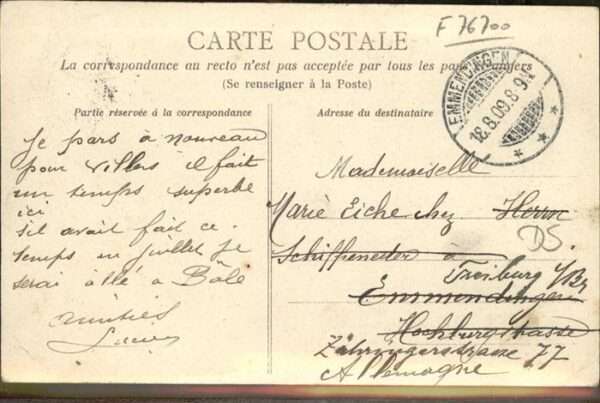 F 76700
CARTE POSTALE
La correspondance au recto n'est pas acceptée par tous les pays étrangers
(Se renseigner à la Poste)
Partie réservée à la correspondance
Adresse du destinataire
EMMENDINGEN
18.8.09.8-9V.
Je pars à nouveau
pour Villers il fait
un temps superbe
ici
s'il avait fait ce
temps en juillet je
serai allé à Bâle
amitiés
Mademoiselle
Marie Eiche chez Herrn
Schiffeneder à
Freiburg i/Br
Emmendingen
Hochburgstrasse
Zähringerstrasse 77
Allemagne
DS